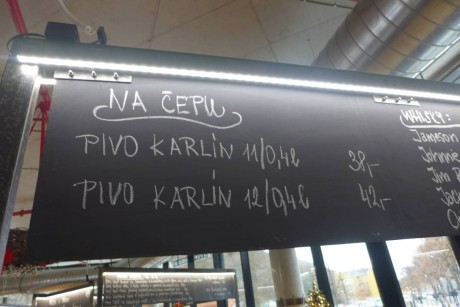 NA ČEPU
PIVO KARLÍN 11/0,4l 38,-
PIVO KARLÍN 12/0,4l 42,-
WHISKY:
Jameson
Johnnie
Jim B